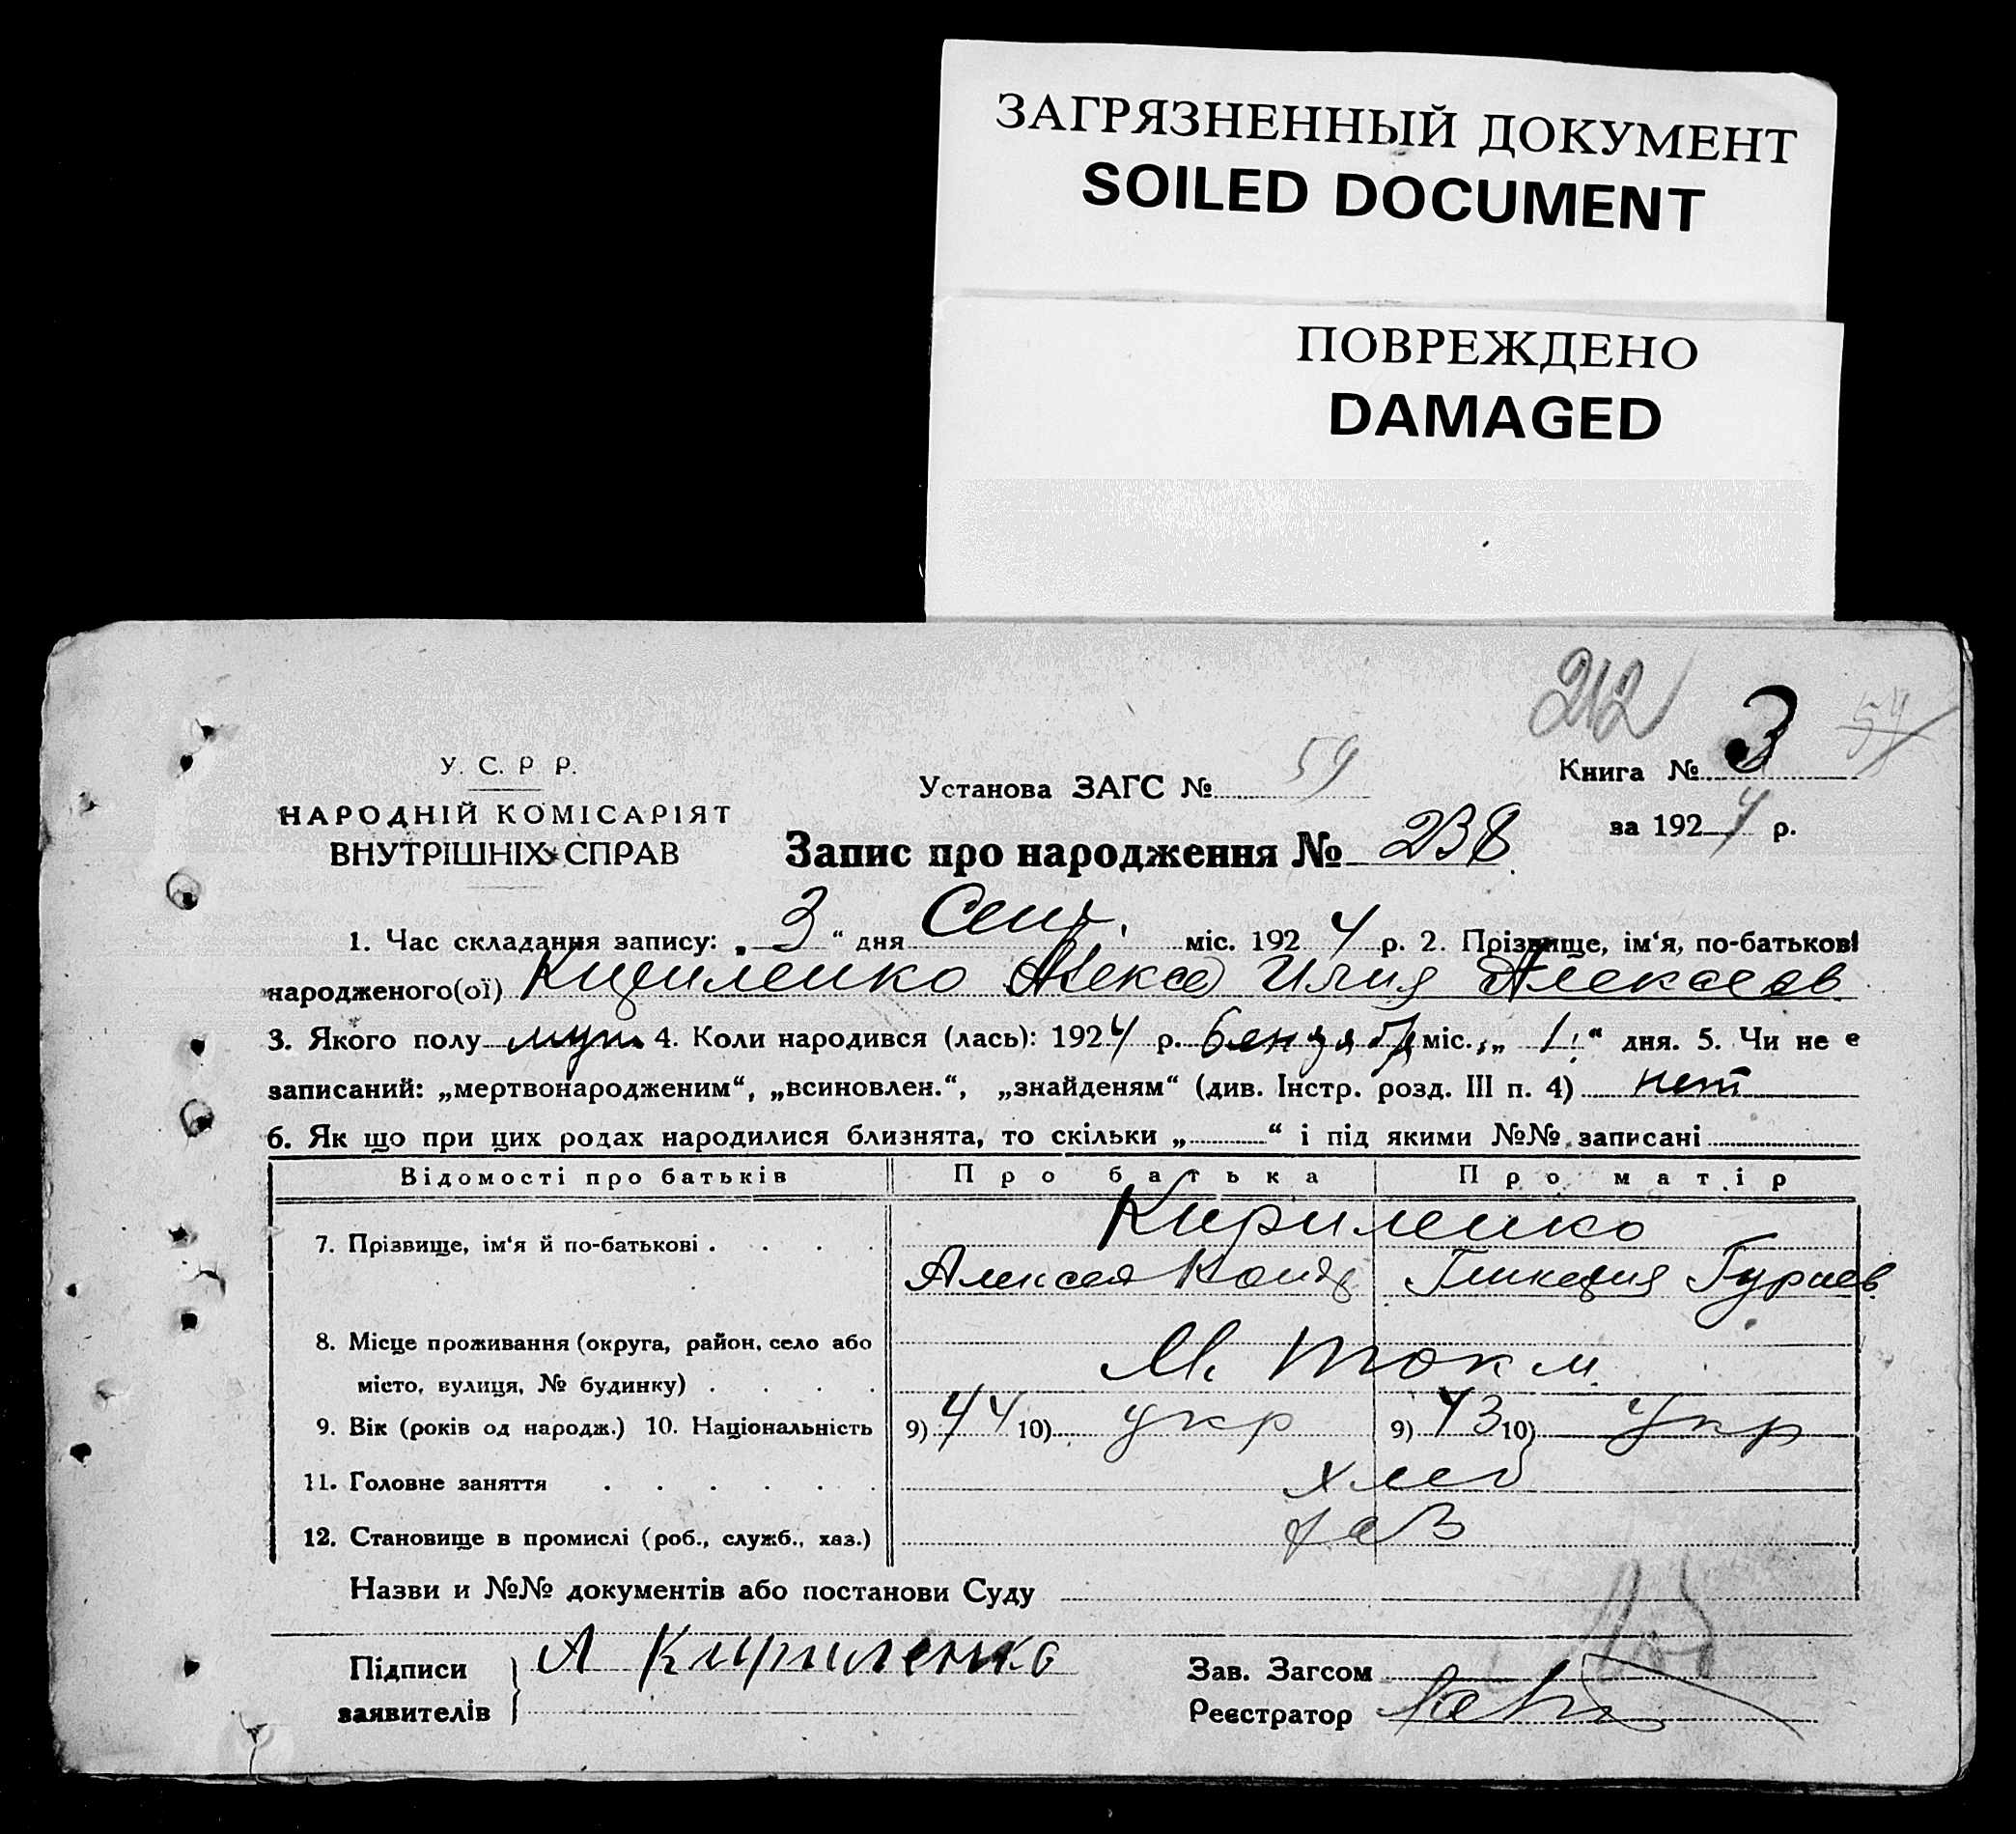 ЗАГРЯЗНЕННЫЙ ДОКУМЕНТ
SOILED DOCUMENT
ПОВРЕЖДЕНО
DAMAGED
212
У. С. Р Р.
НАРОДНІЙ КОМІСАРІЯТ
ВНУТРІШНІХ СПРАВ
Установа ЗАГС № 54
Книга № 3 54
за 1924 р.
Запис про народження № 238
1. Час складання запису: „ 3 “ дня Сент. міс. 1924 р. 2. Прізвище, ім‘я, по-батькові
народженого(ої) Кириленко Илия Алексеев
3. Якого полу муж 4. Коли народився (лась): 1924 р. Сентяб міс. „ 1 “ дня. 5. Чи не е
записаний: „мертвонародженим“, „всиновлен.“, „знайденям“ (див. Інстр. розд. III п. 4) нет
6. Як що при цих родах народилися близнята, то скільки „ “ і під якими №№ записані
Відомості про батьків Про батька Про матір
7. Прізвище, ім‘я й по-батькові . . . . Кириленко
Алексей Гликерия Гуриев
8. Місце проживання (округа, район, село або
місто, вулиця, № будинку) . . . . М. Токм
9. Вік (років од народж.) 10. Національність 9) 44 10) укр 9) 43 10) Укр
11. Головне заняття . . . . . . хлеб
12. Становище в промислі (роб., служб., хаз.)
Назви и №№ документів або постанови Суду
Підписи А Кириленко Зав. Загсом
заявителів Реєстратор